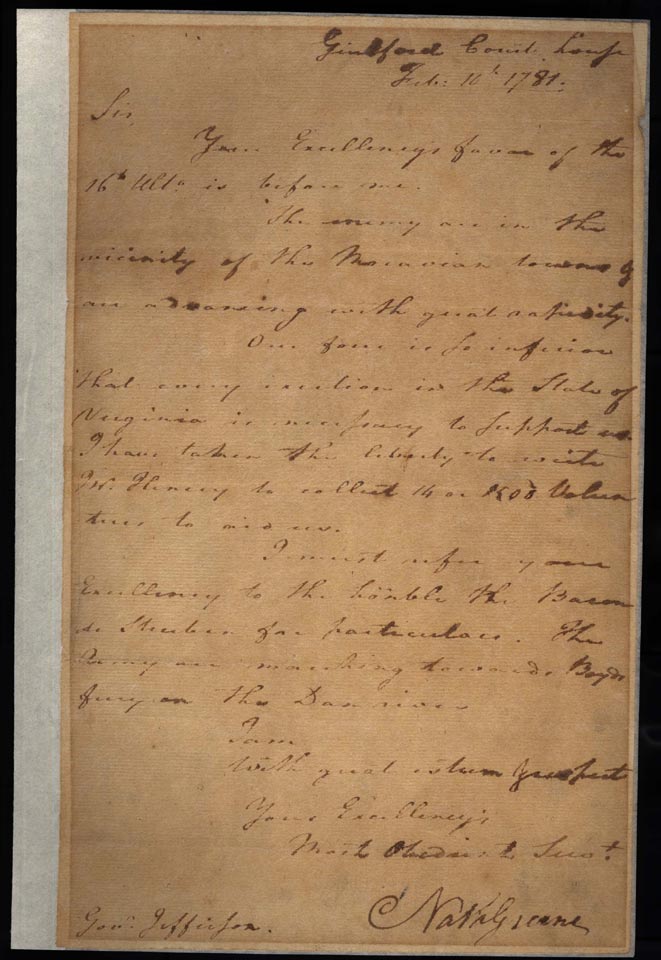 Guilford Court house
Feb: 10th 1781.
Sir,
Your Excellency's favor of the
16th Ulto is before me.
The enemy are in the
vicinity of the Moravian towns &
are advancing with great rapidity.
Our force is so inferior
that every exertion in the State of
Virginia is necessary to support us.
I have taken the liberty to write
Mr. Henry to collect 14 or 1500 Volun
teers to aid us.
I must refer your
Excellency to the honble the Baron
de Steuben for particulars. The
Army are marching towards Boyds
ferry on the Dan river
I am
With great esteem & respect
Your Excellency's
Most Obedient Servt.
Nath Greene
Govr. Jefferson.